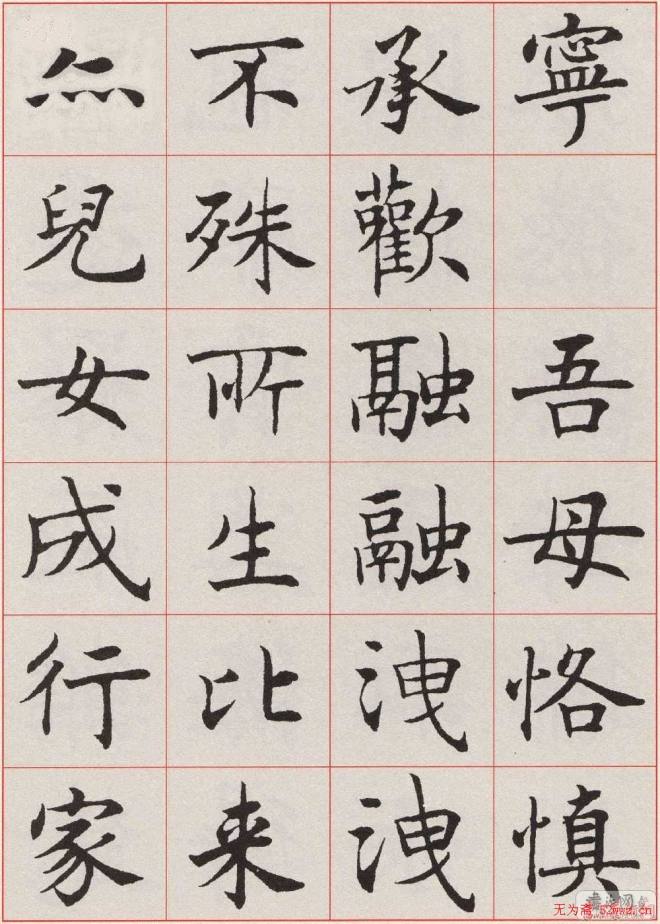 寧 吾母恪慎
承歡融融洩洩
不殊所生比来
兒女成行家
无为斋 52wwz.cn